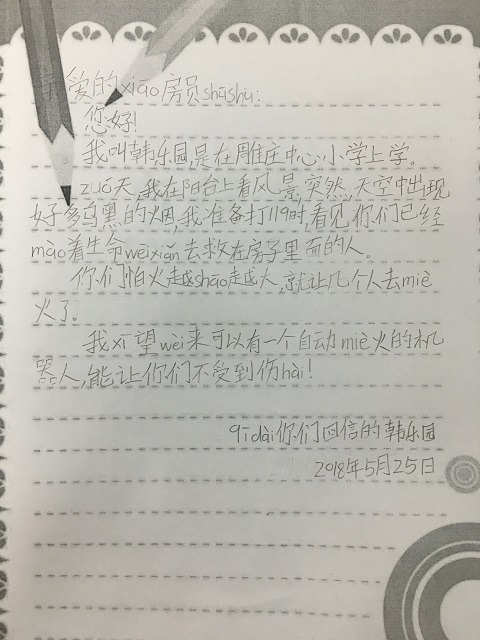 亲爱的xiāo房员shūshu:
您好!
我叫韩乐园,是在周庄中心小学上学。
zuó天,我在阳台上看风景,突然,天空中出现
好多乌黑的烟,我准备打119时,看见你们已经
mào着生命wēixiǎn去救在房子里面的人。
你们怕火越shāo越大,就让几个人去miè
火了。
我xī望wèi来可以有一个自动miè火的机
器人,能让你们不受到伤hài!
qīdài你们回信的韩乐园
2018年5月25日